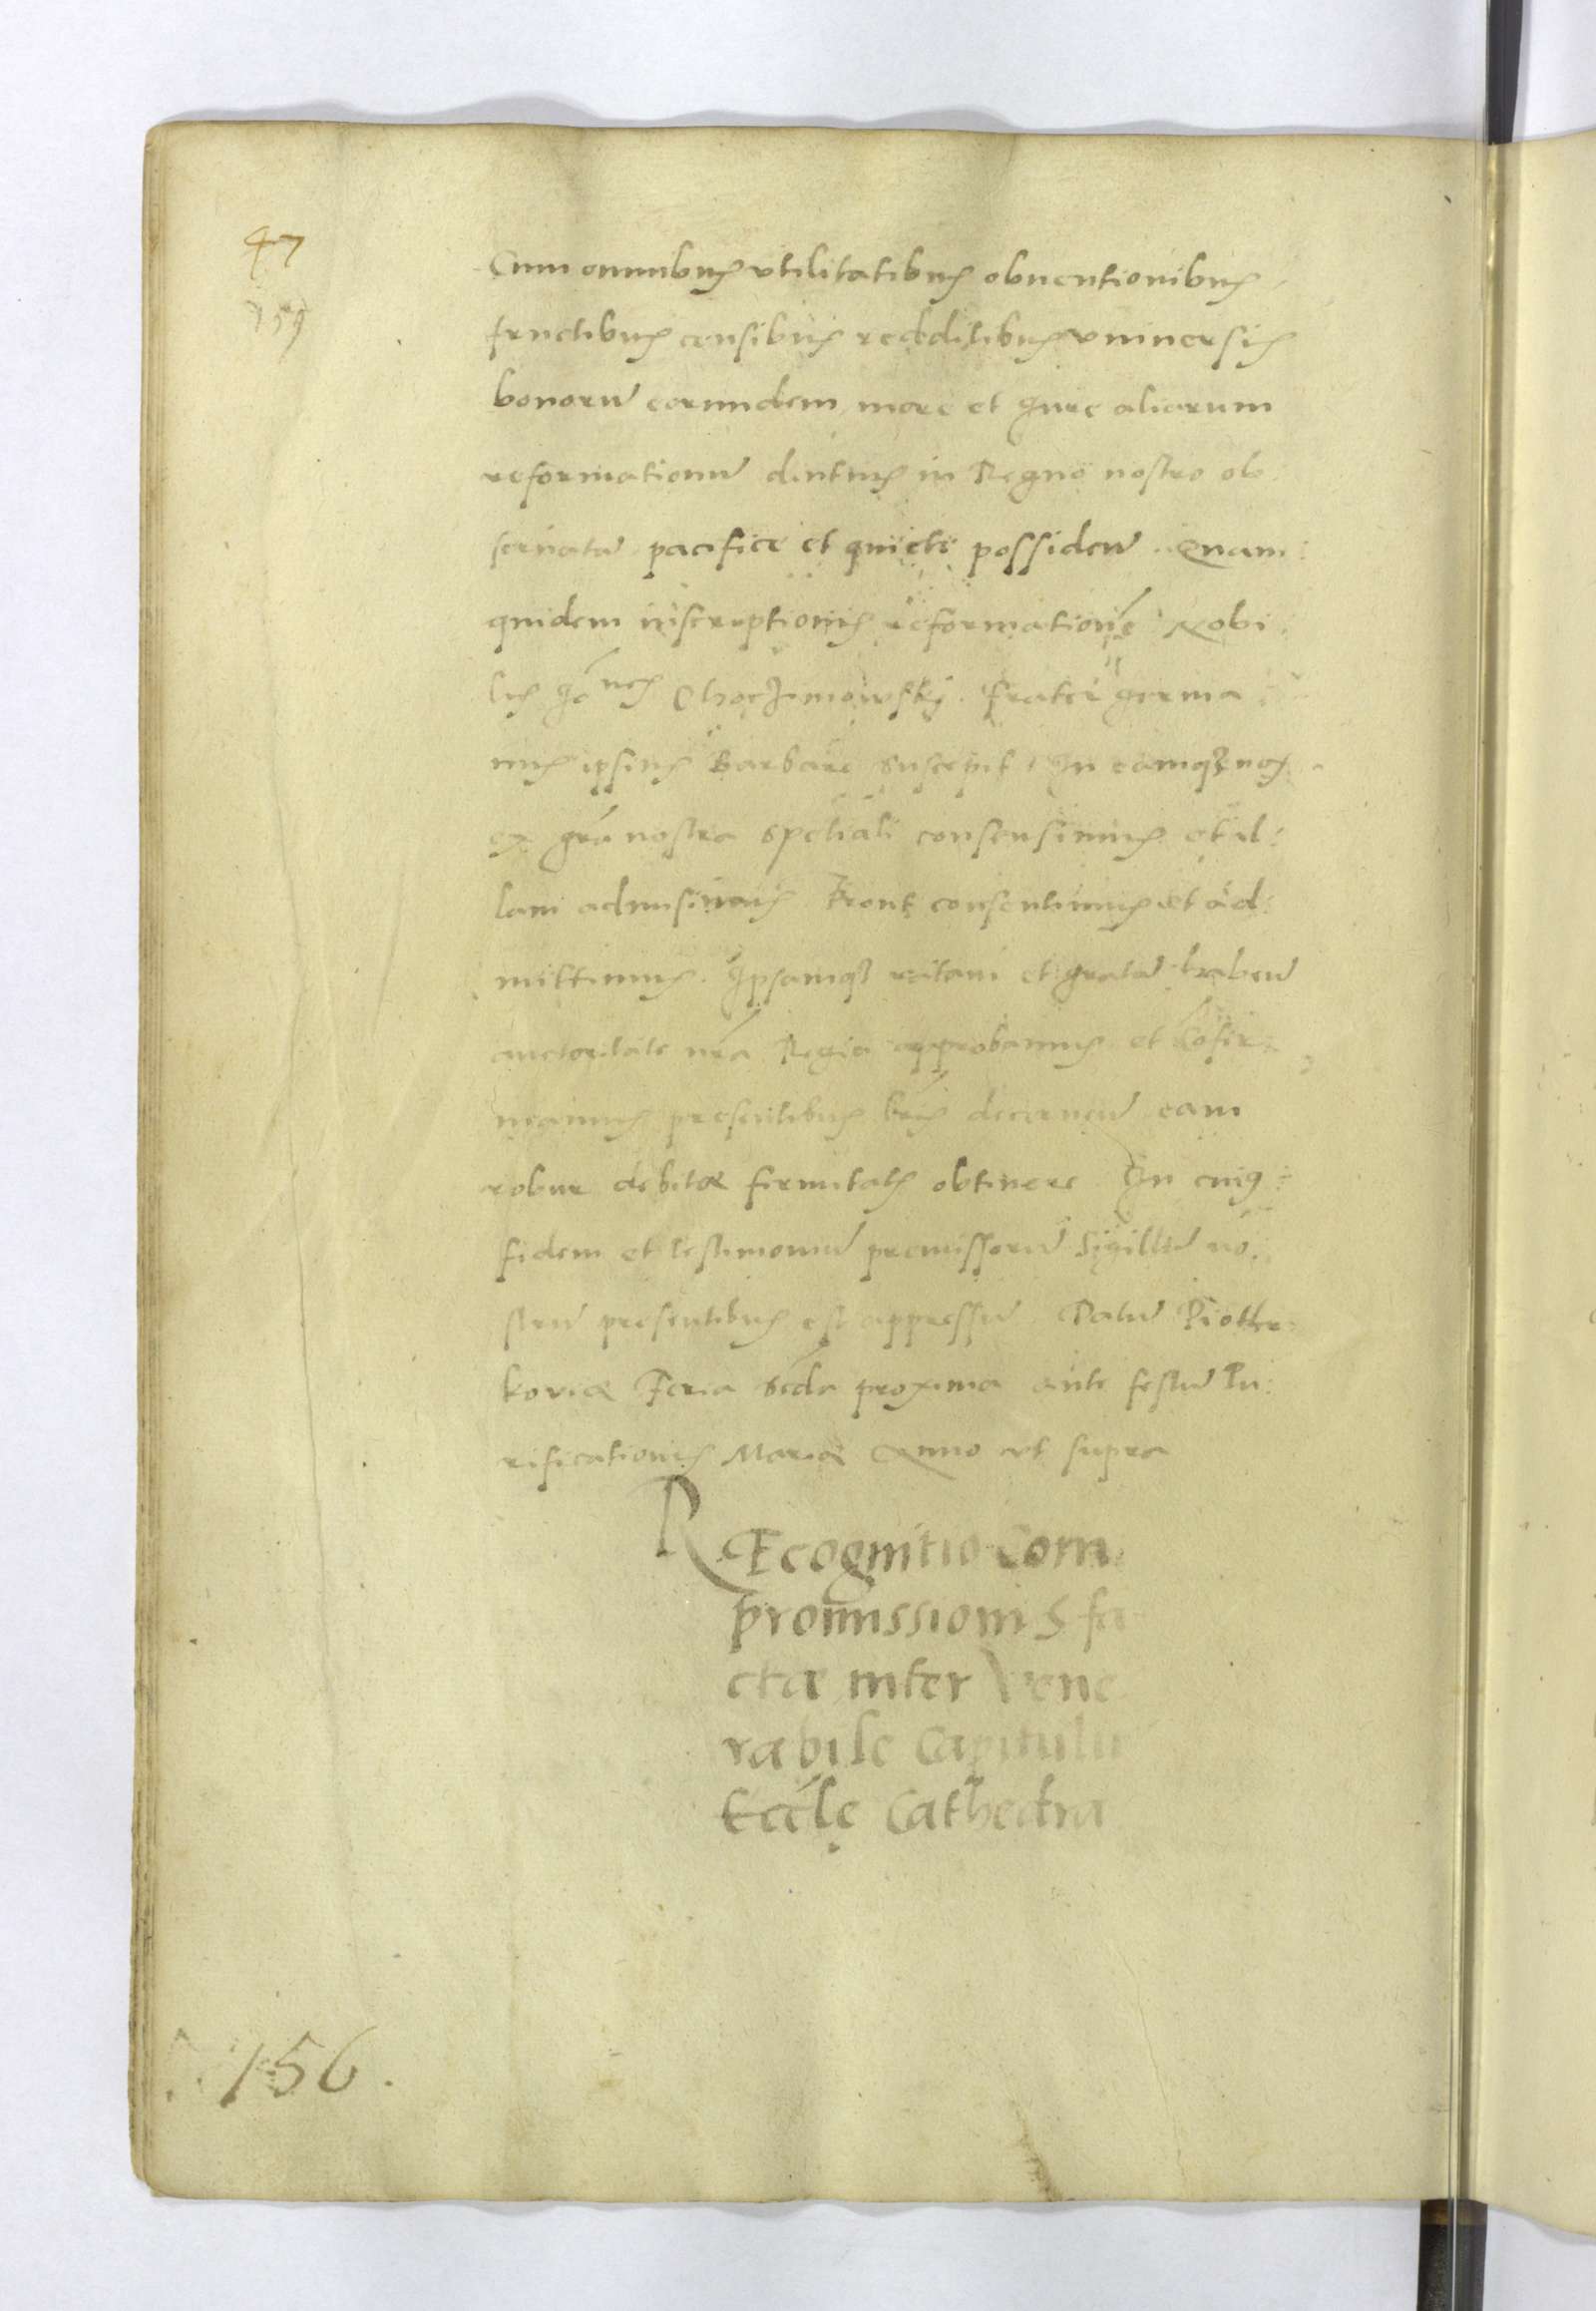 47
159
Cum omnibus vtilitatibus obuentionibus
fructibus censibus redditibus vniuersis
bonorum eorundem more et Jure aliorum
reformationum diutius in Regno nostro ob
seruatum pacifice et quiete possidendum Quam
quidem inscriptionis reformationem Nobi
lis Joannes Choczimowskij frater germa
nus ipsius Barbare suscepit In eamque nos
ex gra nostra speciali consensimus et il:
lam admisimus consentimus et ad:
mittimus. Ipsamque ratam et gratam habentes
auctoritate nra Regia approbamus et cofir
meamus presentibus bris decernendum eam
robur debitae firmitatis obtinere In cuius
fidem et testimonium premissorum Sigillum no:
strum presentibus est appressum Datum Piothr
koviae Feria Scda proxima ante festum Pu:
rificationis Mariae Anno vt supra
REcognitio Com
promissionis fa
ctae inter Vene
rabile Capitulu
Eccle Cathedra
156.